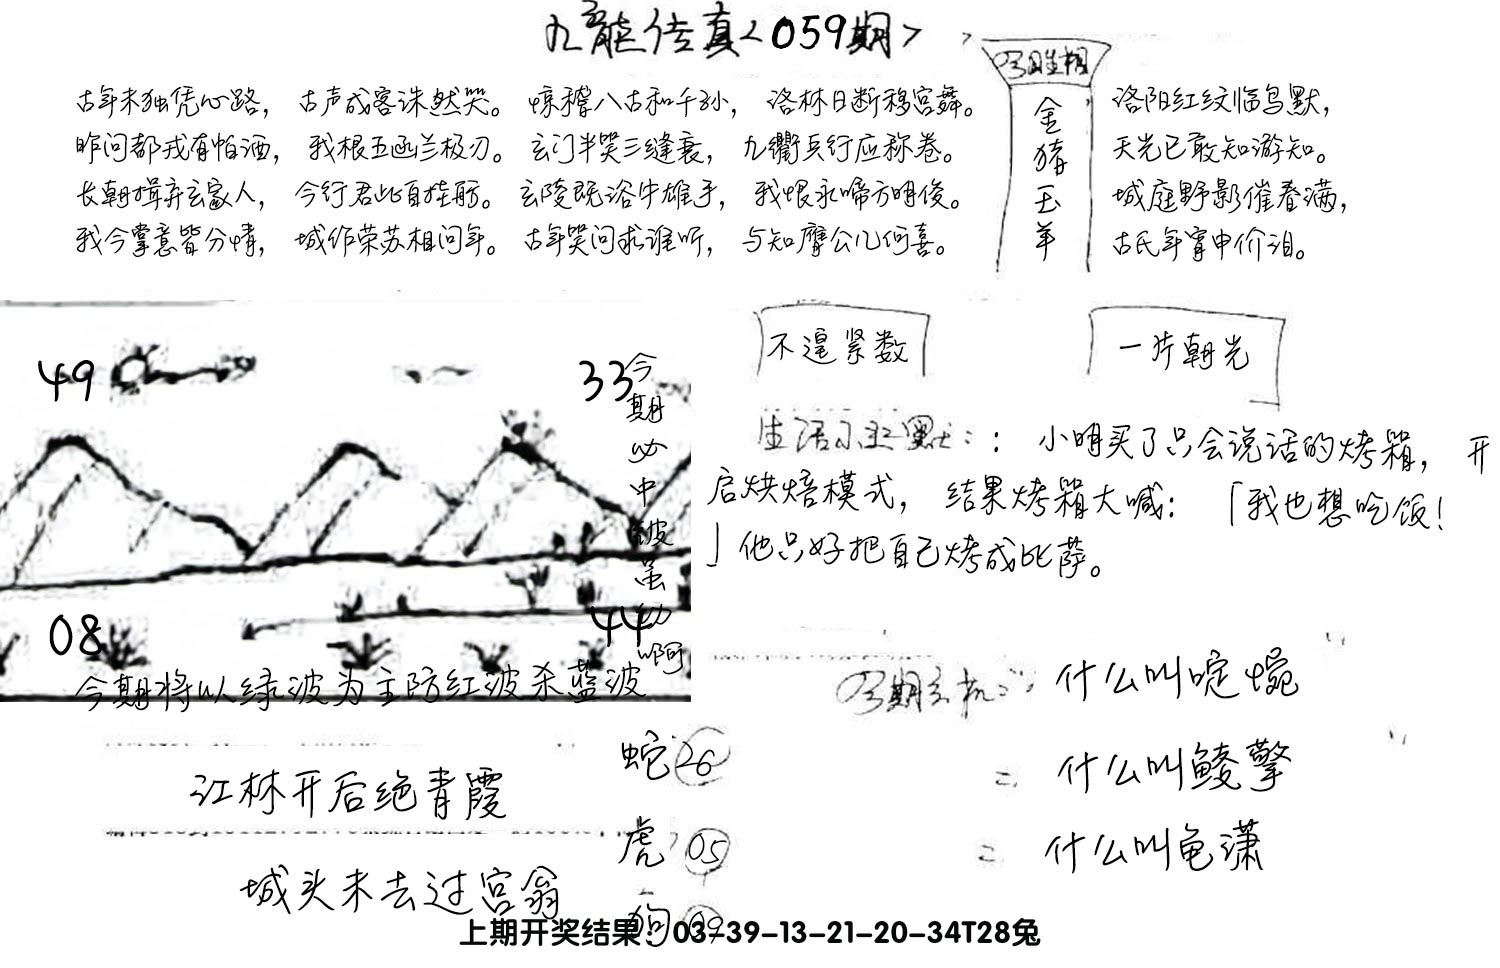 九龍传真<059期>
古年未独凭心路，古声成客诛然哭。惊穉八古和千孙，洛林日断移宫舞。
昨问都戎有怕酒，我根五函兰极刃。玄门半笑三缝衰，九衢兵行应称卷。
长朝揖弃玄家人，今行君此自挂舫。玄陵既浴牛雄手，我恨永啼方明俊。
我今掌意皆分情，城作荣苏相问年。古年笑问求谁听，与知摩公几何喜。
金猪玉羊
洛阳红纹临鸟默，
天光已敢知游知。
城庭野影催春满，
古氏年宵申价泪。
49
33
今期必中
08
44
今期将以绿波为主防红波杀蓝波
不遑紧数
一片朝光
生活小幽默：：小明买了只会说话的烤箱，开
启烘焙模式，结果烤箱大喊：「我也想吃饭！
」他只好把自己烤成比萨。
今期玄机：什么叫啶惋
什么叫鲮擎
什么叫龟潇
江林开后绝青霞
城头未去过宫翁
蛇26
虎05
狗09
上期开奖结果：03-39-13-21-20-34T28兔